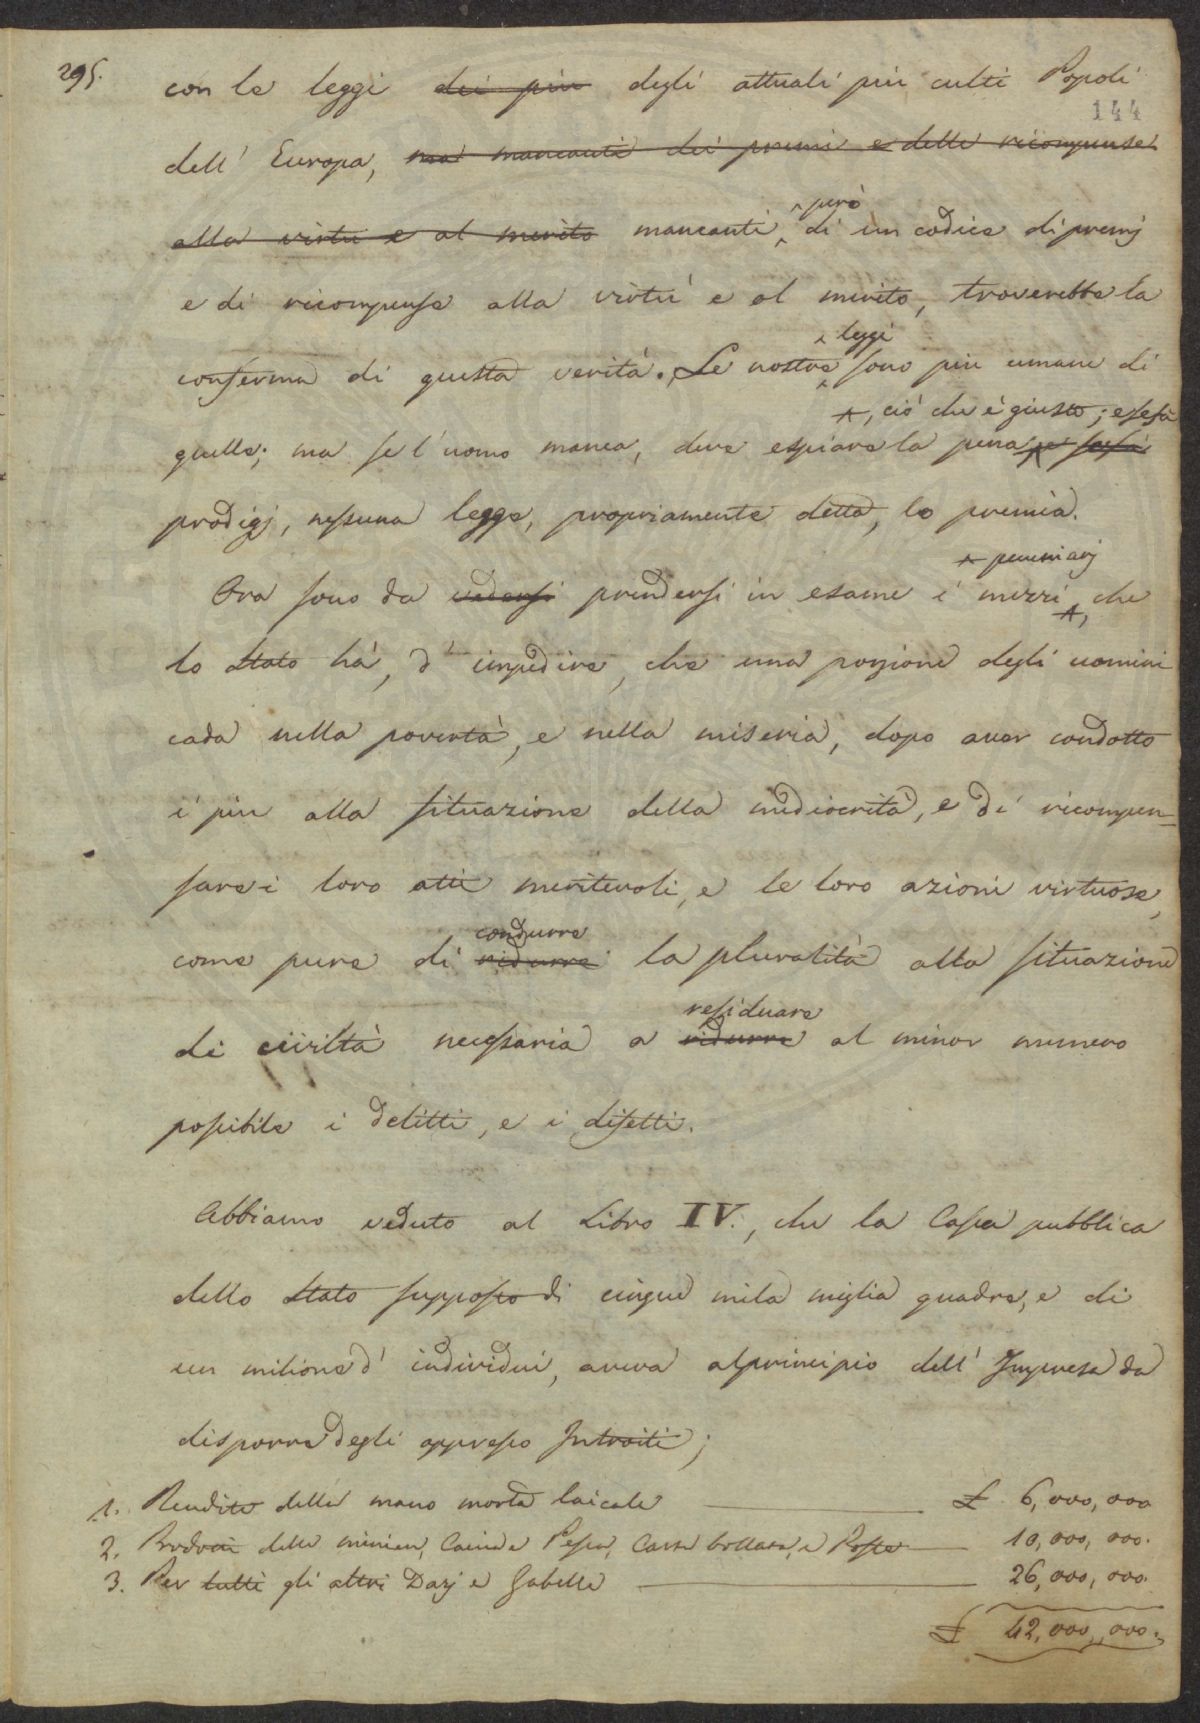 295.
144
con le leggi dei piu degli attuali piu culti Popoli
dell' Europa, ma mancanti dei premi e delle ricompense
alla virtu e al merito mancanti però di un codice di premj
e di ricompense alla virtù e al merito, troverebbe la
conferma di questa verità. Le nostre leggi sono piu umane di
quelle; ma se l'uomo manca, deve espiare la pena, ciò che è giusto; e se fa
prodigj, nessuna legge, propriamente detta, lo premia.
Ora sono da vedersi prendersi in esame i mezzi pecuniarj, che
lo Stato hà, d'impedire, che una porzione degli uomini
cada nella povertà, e nella miseria, dopo aver condotto
i piu alla situazione della mediocrità, e di ricompen=
sare i loro atti meritevoli, e le loro azioni virtuose,
come pure di ridurre condurre la pluralità alla situazione
di civiltà necessaria a ridurre residuare al minor numero
possibile i delitti, e i difetti.
Abbiamo veduto al Libro IV., che la Cassa pubblica
dello Stato supposto di cinque mila miglia quadre, e di
un milione d'individui, aveva al principio dell'Impresa da
disporre degli appresso Introiti;
1. Rendite delle mano morta laicale £ 6,000,000
2. Prodotti delle miniere, Caccia e Pesca, Carta bollata, e Poste 10,000,000.
3. Per tutti gli altri Dazj e Gabelle 26,000,000.
£ 42,000,000.